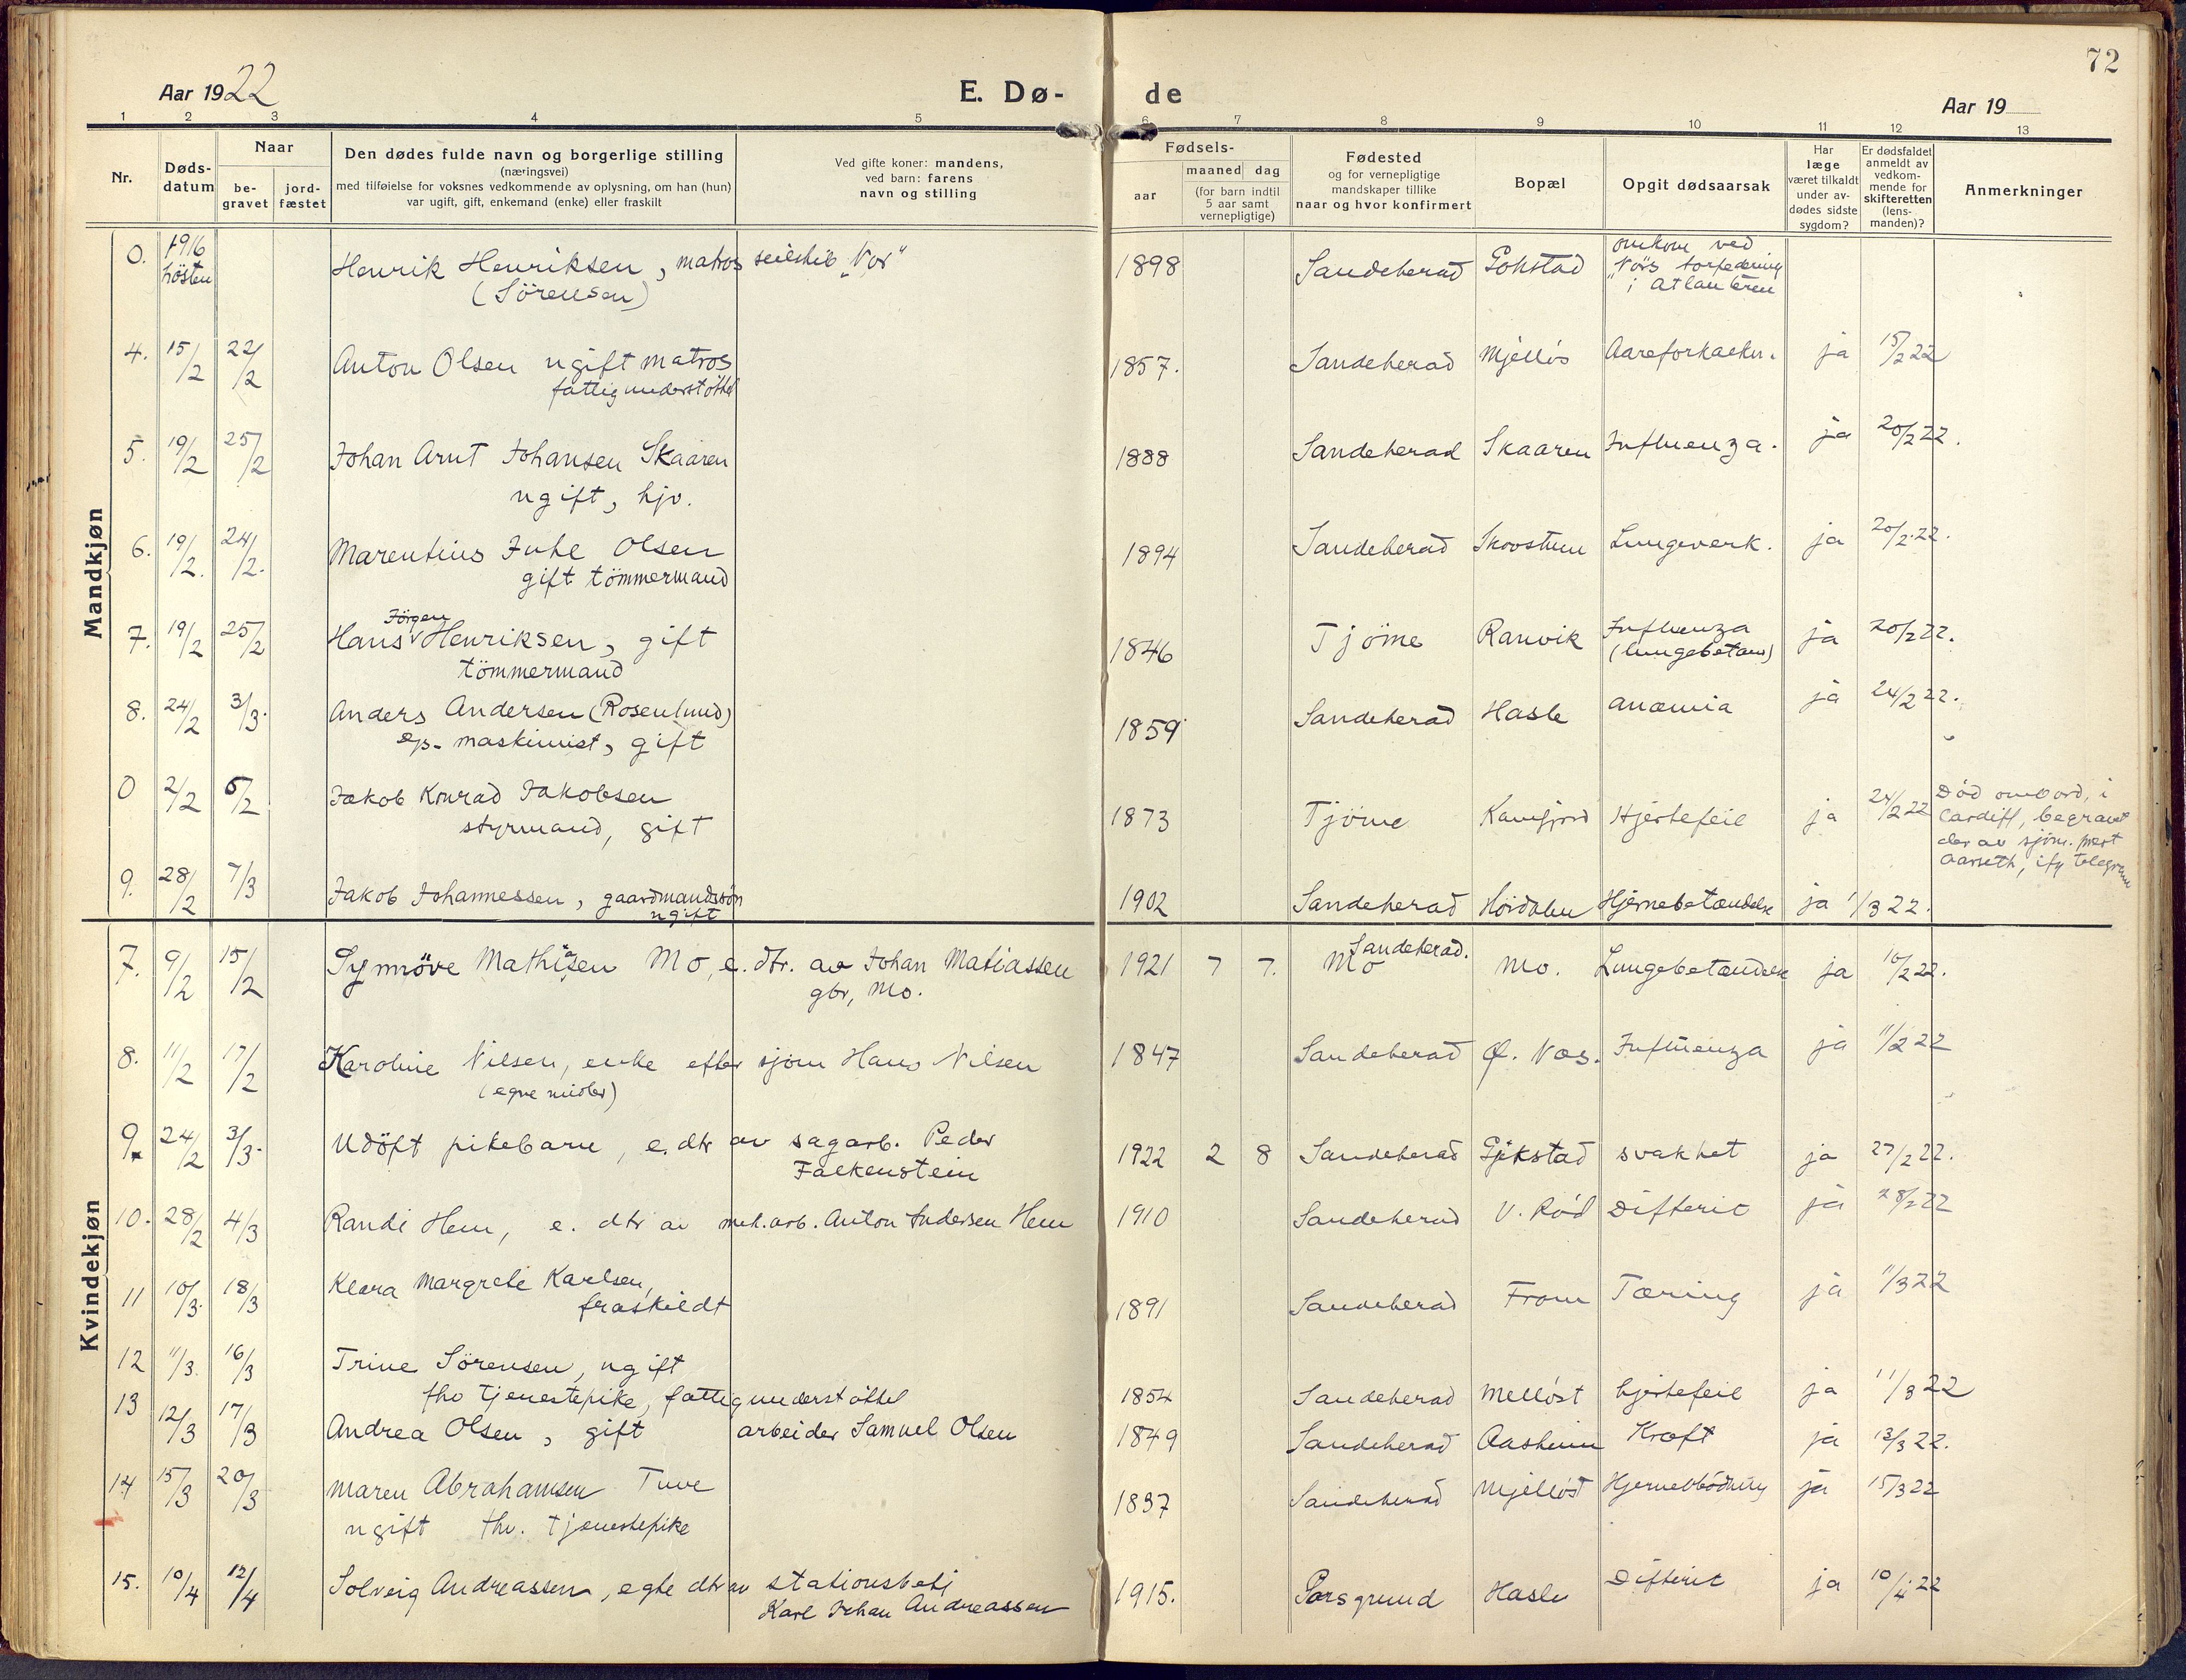 72
Aar 1922
E. Dø-
de
Aar 19
1 2 3 4 5 6 7 8 9 10 11 12 13
Nr.
Døds-
datum
Naar
be-
gravet
jord-
fæstet
Den dødes fulde navn og borgerlige stilling
(næringsvei)
med tilføielse for voksnes vedkommende av oplysning, om han (hun)
var ugift, gift, enkemand (enke) eller fraskilt
Ved gifte koner: mandens,
ved barn: farens
navn og stilling
Fødsels-
aar
maaned dag
(for barn indtil
5 aar samt
vernepligtige)
Fødested
og for vernepligtige
mandskaper tillike
naar og hvor konfirmert
Bopæl
Opgit dødsaarsak
Har
læge
været tilkaldt
under av-
dødes sidste
sygdom?
Er dødsfaldet
anmeldt av
vedkom-
mende for
skifteretten
(lens-
manden)?
Anmerkninger
Mandkjøn
0. 1916 hösten Henrik Henriksen, matros seilskib "Vör" 1898 Sandeherad Gokstad omkom ved
(Sörensen) "Vörs torpedering
i Atlanteren
4. 15/2 22/2 Anton Olsen ugift matros 1857. Sandeherad Mjellös Aareforkalkn. ja 15/2 22
fattigunderstöttet
5. 19/2 25/2 Johan Arnt Johansen Skaaren 1888 Sandeherad Skaaren Influenza. ja 20/2 22.
ugift, hjv.
6. 19/2. 24/2. Marentius Juhl Olsen 1894 Sandeherad Skovstuen Lungeverk. ja 20/2.22.
gift tömmermand
Jörgen
7. 19/2 25/2 Hans Henriksen, gift 1846 Tjöme Ranvik Influenza ja 20/2 22.
tömmermand (lungebetæn)
8. 24/2 3/3. Anders Andersen (Rosenlund) 1859 Sandeherad Hasle anæmia ja 24/2 22.
maskinist, gift
0 2/2 5/2 Jakob Konrad Jakobsen 1873 Tjöme Kamfjord Hjertefeil ja 24/2 22 Död ombord, i
styrmand, gift Cardiff, begravet
der av sjöm. prest
Aarseth, ifg telegram
9. 28/2 7/3 Jakob Johannessen, gaardmandssön 1902 Sandeherad Höidalen Hjernebetændelse ja 1/3 22.
ugift
Kvindekjøn
7. 9/2 15/2 Synnöve Mathisen Mo, e. dtr. av Johan Matiassen 1921 7 7. Mo Sandeherad. Mo. Lungebetændelse ja 10/2 22.
gbr, Mo.
8. 11/2 17/2 Karoline Nilsen, enke efter sjöm Hans Nilsen 1847 Sandeherad Ø. Nes. Influenza ja 11/2 22
(egne midler)
9. 24/2 3/3. Udöpt pikebarn, e. dtr av sagarb. Peder 1922 2 8 Sandeherad Gjekstad svakhet ja 27/2 22.
Falkenstein
10. 28/2 4/3 Randi Hem, e. dtr av mek.arb. Anton Andersen Hem 1910 Sandeherad V. Röd Difterit ja 28/2 22
11 10/3. 18/3 Klara Margrete Karlsen, 1891 Sandeherad From Tæring ja 11/3 22
fraskildt
12 11/3. 16/3 Trine Sörensen, ugift
fhv tjenestepike, fattigunderstöttet 1854 Sandeherad Mellöst hjertefeil ja 11/3 22
13 12/3 17/3 Andrea Olsen, gift arbeider Samuel Olsen 1849 Sandeherad Aasheim Kræft ja 13/3 22.
14 15/3 20/3 Maren Abrahamsen Tuve 1837 Sandeherad Mjellöst Hjerneblödning ja 15/3 22
ugift fhv. tjenestepike
15. 10/4 12/4 Solveig Andreassen, egte dtr av stationsbetj 1915. Porsgrund Hasle Difterit ja 10/4 22
Karl Johan Andreassen